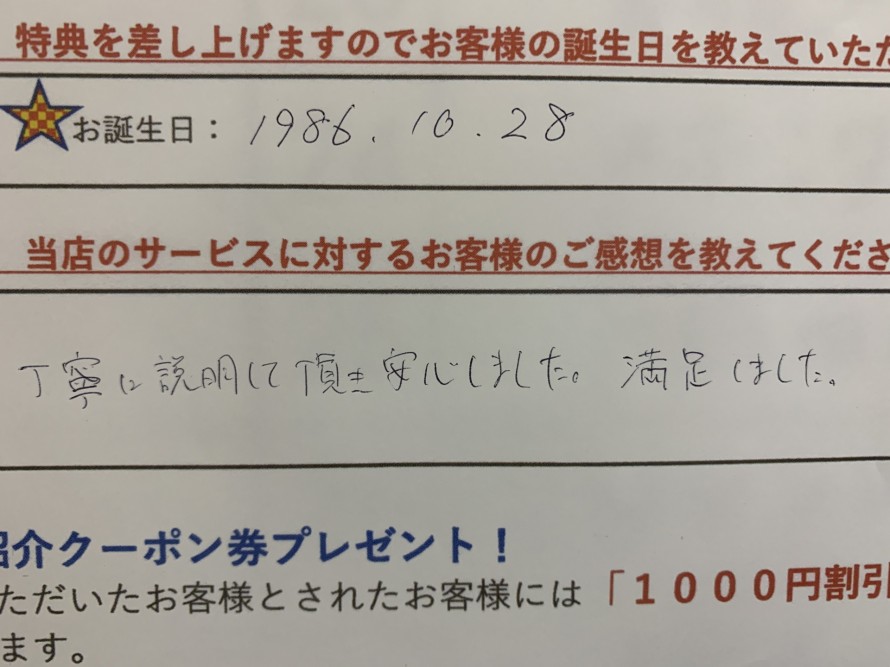 特典を差し上げますのでお客様の誕生日を教えていただ
お誕生日： 1986. 10. 28
当店のサービスに対するお客様のご感想を教えてくださ
丁寧に説明して頂き安心しました。 満足しました。
紹介クーポン券プレゼント！
ただいたお客様とされたお客様には「１０００円割引
ます。